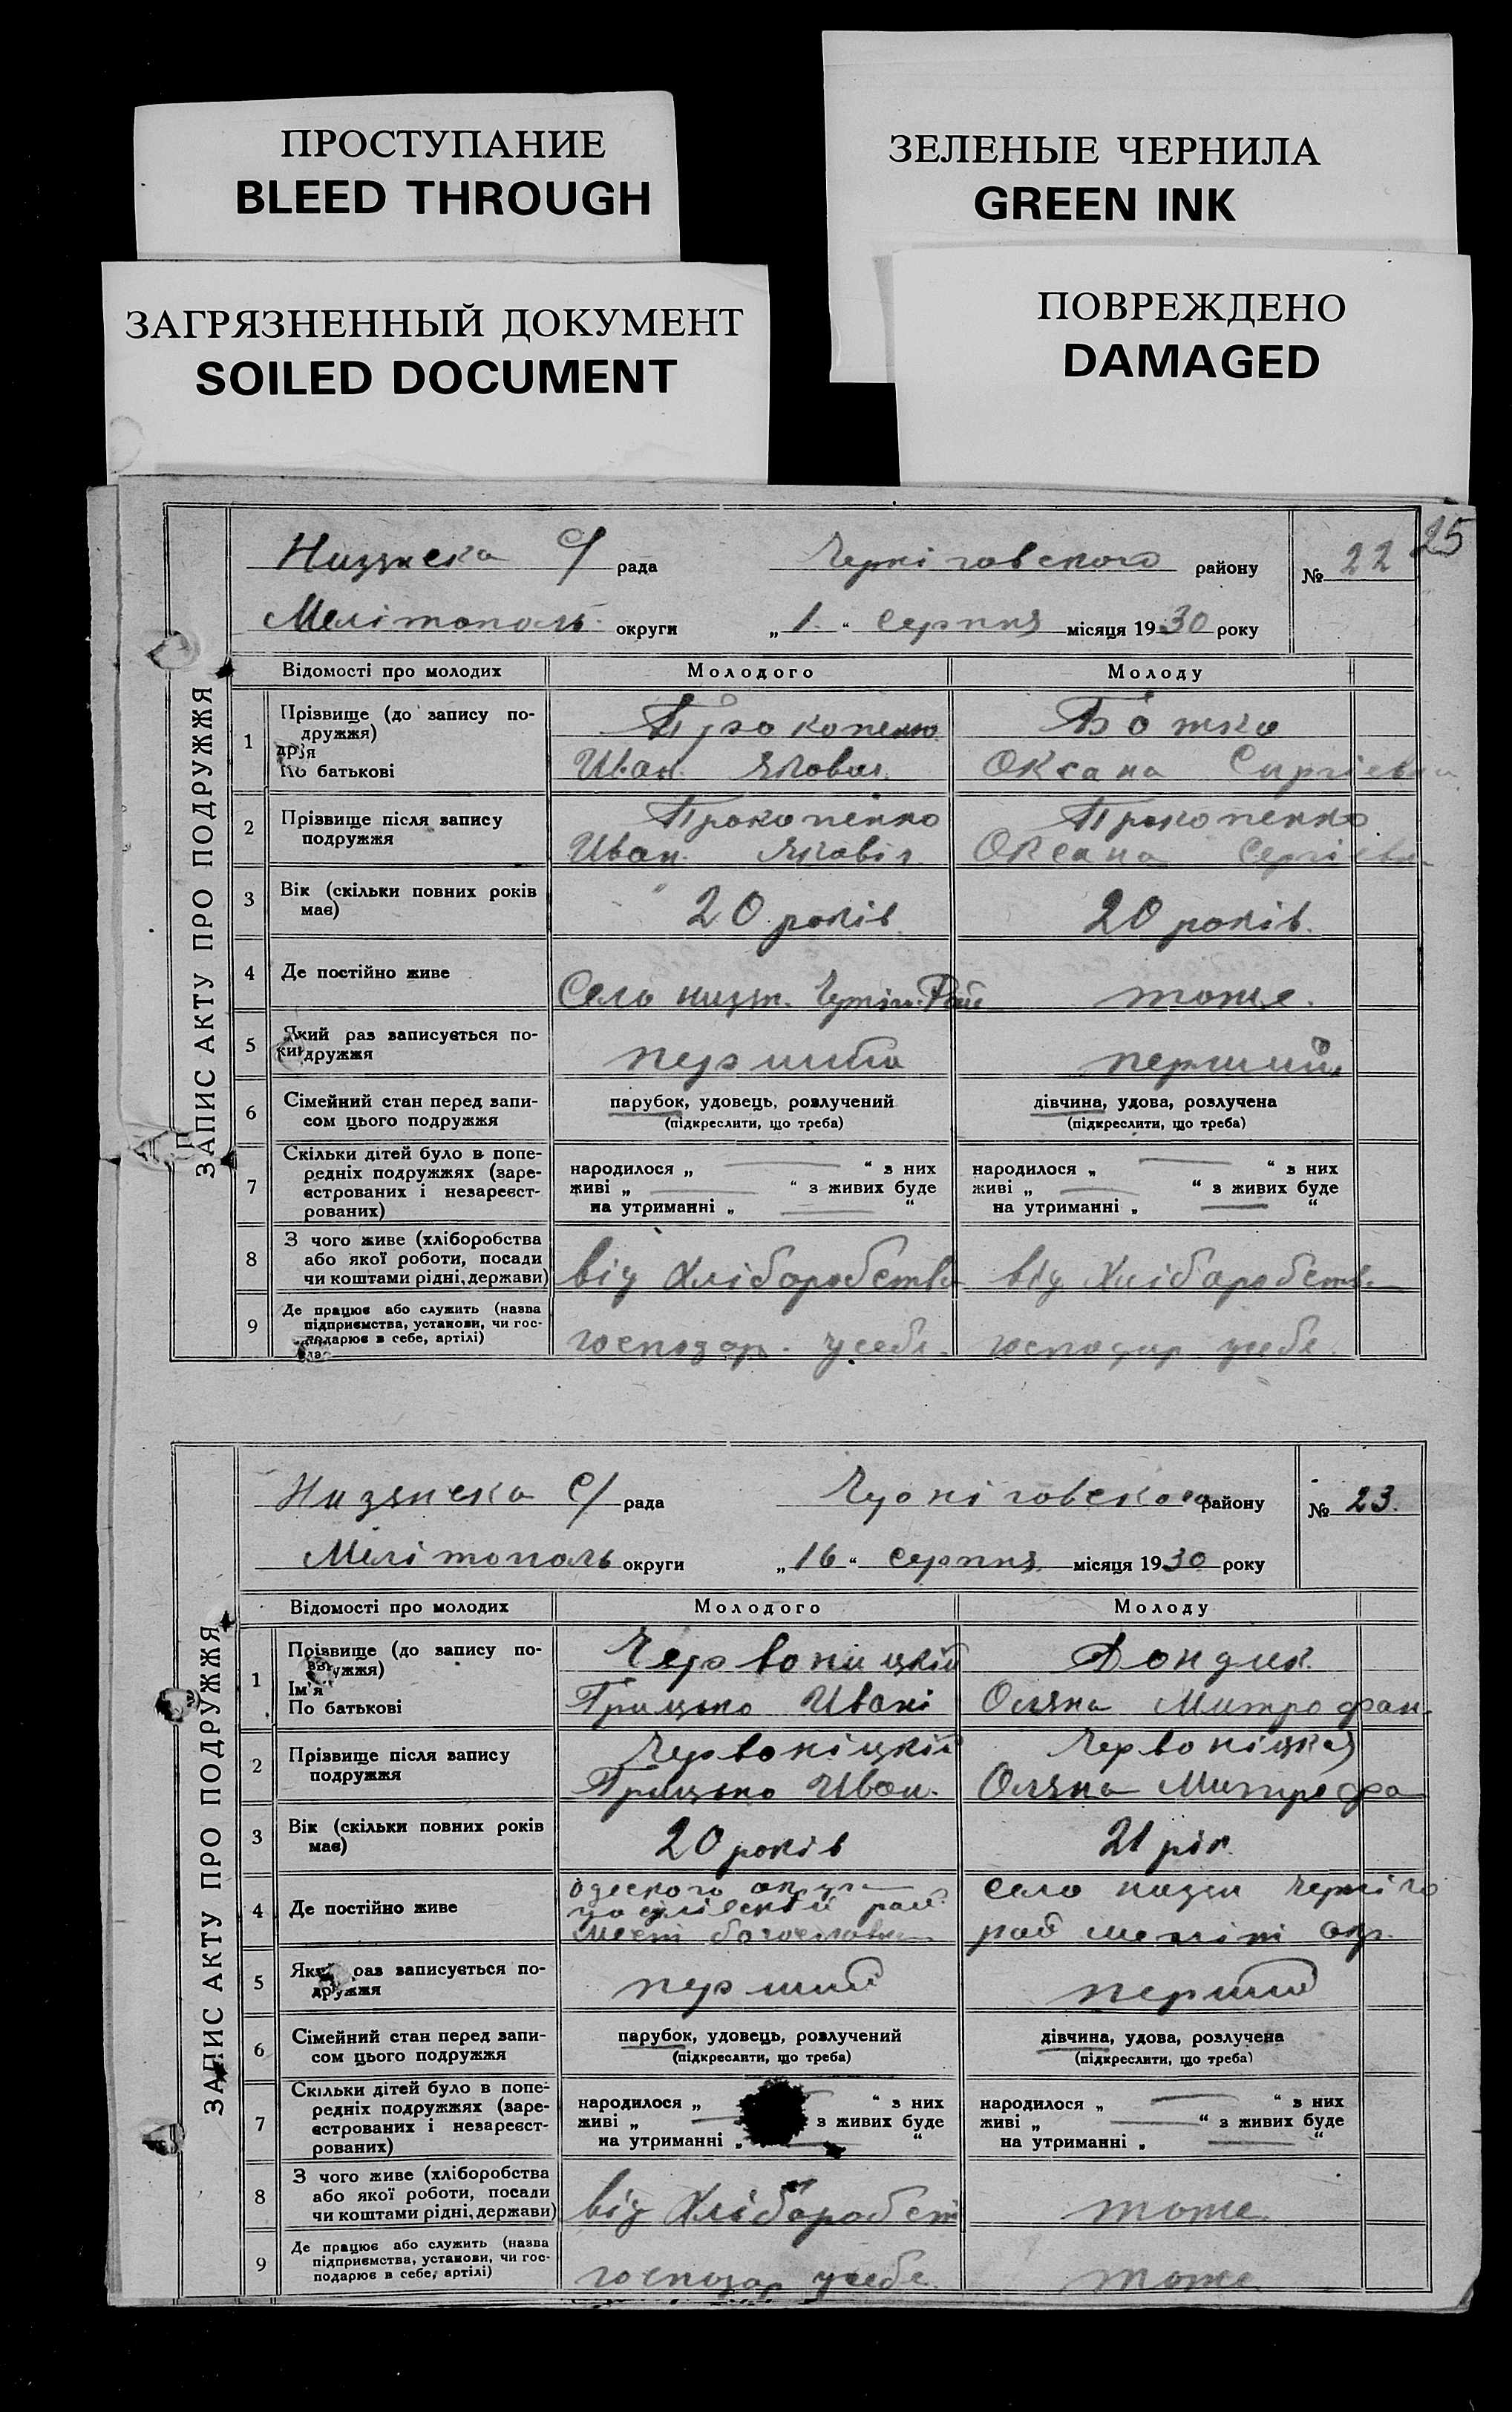 ПРОСТУПАНИЕ
BLEED THROUGH
ЗЕЛЕНЫЕ ЧЕРНИЛА
GREEN INK
ЗАГРЯЗНЕННЫЙ ДОКУМЕНТ
SOILED DOCUMENT
ПОВРЕЖДЕНО
DAMAGED
25
ЗАПИС АКТУ ПРО ПОДРУЖЖЯ
С/ рада району № 22
Мелітополь округи „1.“ серпня місяця 1930 року
Відомості про молодих Молодого Молоду
1 Прізвище (до запису по-
дружжя)
По батькові
Прокопенко Божко
Иван Оксана
2 Прізвище після запису
подружжя
Прокопенко Прокопенко
Иван Оксана
3 Вік (скільки повних років
має)
20 років 20 років.
4 Де постійно живе
Село тоже.
5 Який раз записується по-
дружжя
перший перший
6 Сімейний стан перед запи-
сом цього подружжя
парубок, удовець, розлучений дівчина, удова, розлучена
(підкреслити, що треба) (підкреслити, що треба)
7 Скільки дітей було в попе-
редніх подружжях (заре-
єстрованих і незареєст-
рованих)
народилося „ “ з них народилося „ “ з них
живі „ “ з живих буде живі „ “ з живих буде
на утриманні „ “ на утриманні „ “
8 З чого живе (хліборобства
або якої роботи, посади
чи коштами рідні, держави)
від хліборобства від
9 Де працює або служить (назва
підприємства, установи, чи гос-
подарює в себе, артілі)
господар. усебе. господар усебе.
ЗАПИС АКТУ ПРО ПОДРУЖЖЯ
С/ рада району № 23.
Мелітополь округи „16“ серпня місяця 1930 року
Відомості про молодих Молодого Молоду
1 Прізвище (до запису по-
дружжя)
Ім'я
По батькові
Червоницкій Дондик
Грицько Ивані Оляна Митрофан.
2 Прізвище після запису
подружжя
Червоніцкій Червоніцкая
Грицько Иван. Оляна Митрофа
3 Вік (скільки повних років
має)
20 років 21 рік
4 Де постійно живе
село
рай
5 Який раз записується по-
дружжя
перший перший
6 Сімейний стан перед запи-
сом цього подружжя
парубок, удовець, розлучений дівчина, удова, розлучена
(підкреслити, що треба) (підкреслити, що треба)
7 Скільки дітей було в попе-
редніх подружжях (заре-
єстрованих і незареєст-
рованих)
народилося „ “ з них народилося „ “ з них
живі „ з живих буде живі „ “ з живих буде
на утриманні „ “ на утриманні „ “
8 З чого живе (хліборобства
або якої роботи, посади
чи коштами рідні, держави)
від хлібороб тоже.
9 Де працює або служить (назва
підприємства, установи, чи гос-
подарює в себе, артілі)
господар усебе. тоже